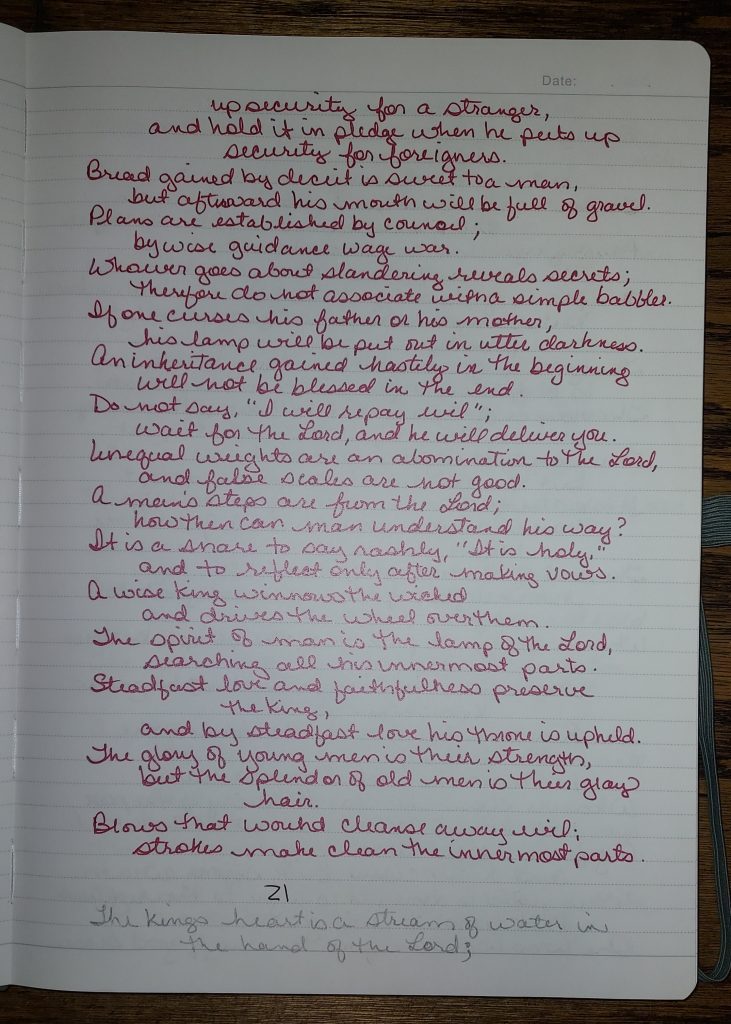 Date:
up security for a stranger,
and hold it in pledge when he puts up
security for foreigners.
Bread gained by deceit is sweet to a man,
but afterward his mouth will be full of gravel.
Plans are established by counsel;
by wise guidance wage war.
Whoever goes about slandering reveals secrets;
therefore do not associate with a simple babbler.
If one curses his father or his mother,
his lamp will be put out in utter darkness.
An inheritance gained hastily in the beginning
will not be blessed in the end.
Do not say, "I will repay evil";
wait for the Lord, and he will deliver you.
Unequal weights are an abomination to the Lord,
and false scales are not good.
A man's steps are from the Lord;
how then can man understand his way?
It is a snare to say rashly, "It is holy,"
and to reflect only after making vows.
A wise king winnows the wicked
and drives the wheel over them.
The spirit of man is the lamp of the Lord,
searching all his innermost parts.
Steadfast love and faithfulness preserve
the king,
and by steadfast love his throne is upheld.
The glory of young men is their strength,
but the splendor of old men is their gray
hair.
Blows that wound cleanse away evil;
strokes make clean the innermost parts.
21
The kings heart is a stream of water in
the hand of the Lord;